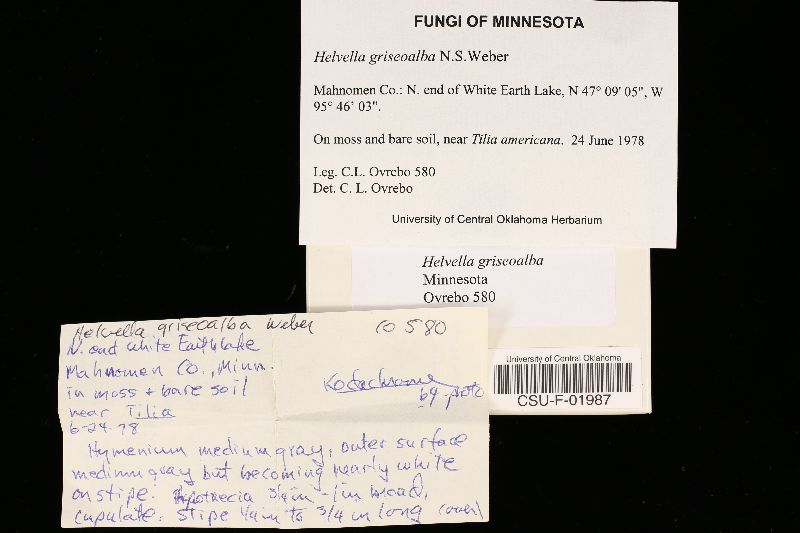 FUNGI OF MINNESOTA
Helvella griseoalba N.S.Weber
Mahnomen Co.: N. end of White Earth Lake, N 47° 09' 05", W
95° 46' 03".
On moss and bare soil, near Tilia americana. 24 June 1978
Leg. C.L. Ovrebo 580
Det. C. L. Ovrebo
University of Central Oklahoma Herbarium
Helvella griseoalba
Minnesota
Ovrebo 580
University of Central Oklahoma
CSU-F-01987
Helvella griseoalba Weber CO 580
N. end White Earth Lake
Mahnomen Co., Minn.
in moss + bare soil
near Tilia
6-24-78
Kodachrome
64 photo
Hymenium medium gray, outer surface
medium gray but becoming nearly white
on stipe. Apothecia 3/4 in - 1 in broad,
cupulate. Stipe 1/4 in to 3/4 in long (over)